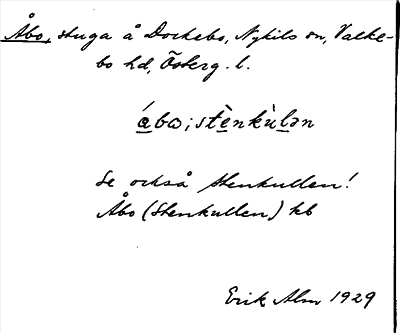 Åbo, stuga å Dockebo, Nykils sn, Valke-
bo hd, Österg. l.
á̱bω; stè̱nkùlə̱n
Se också Stenkullen!
Åbo (Stenkullen) kb
Erik Alm 1929